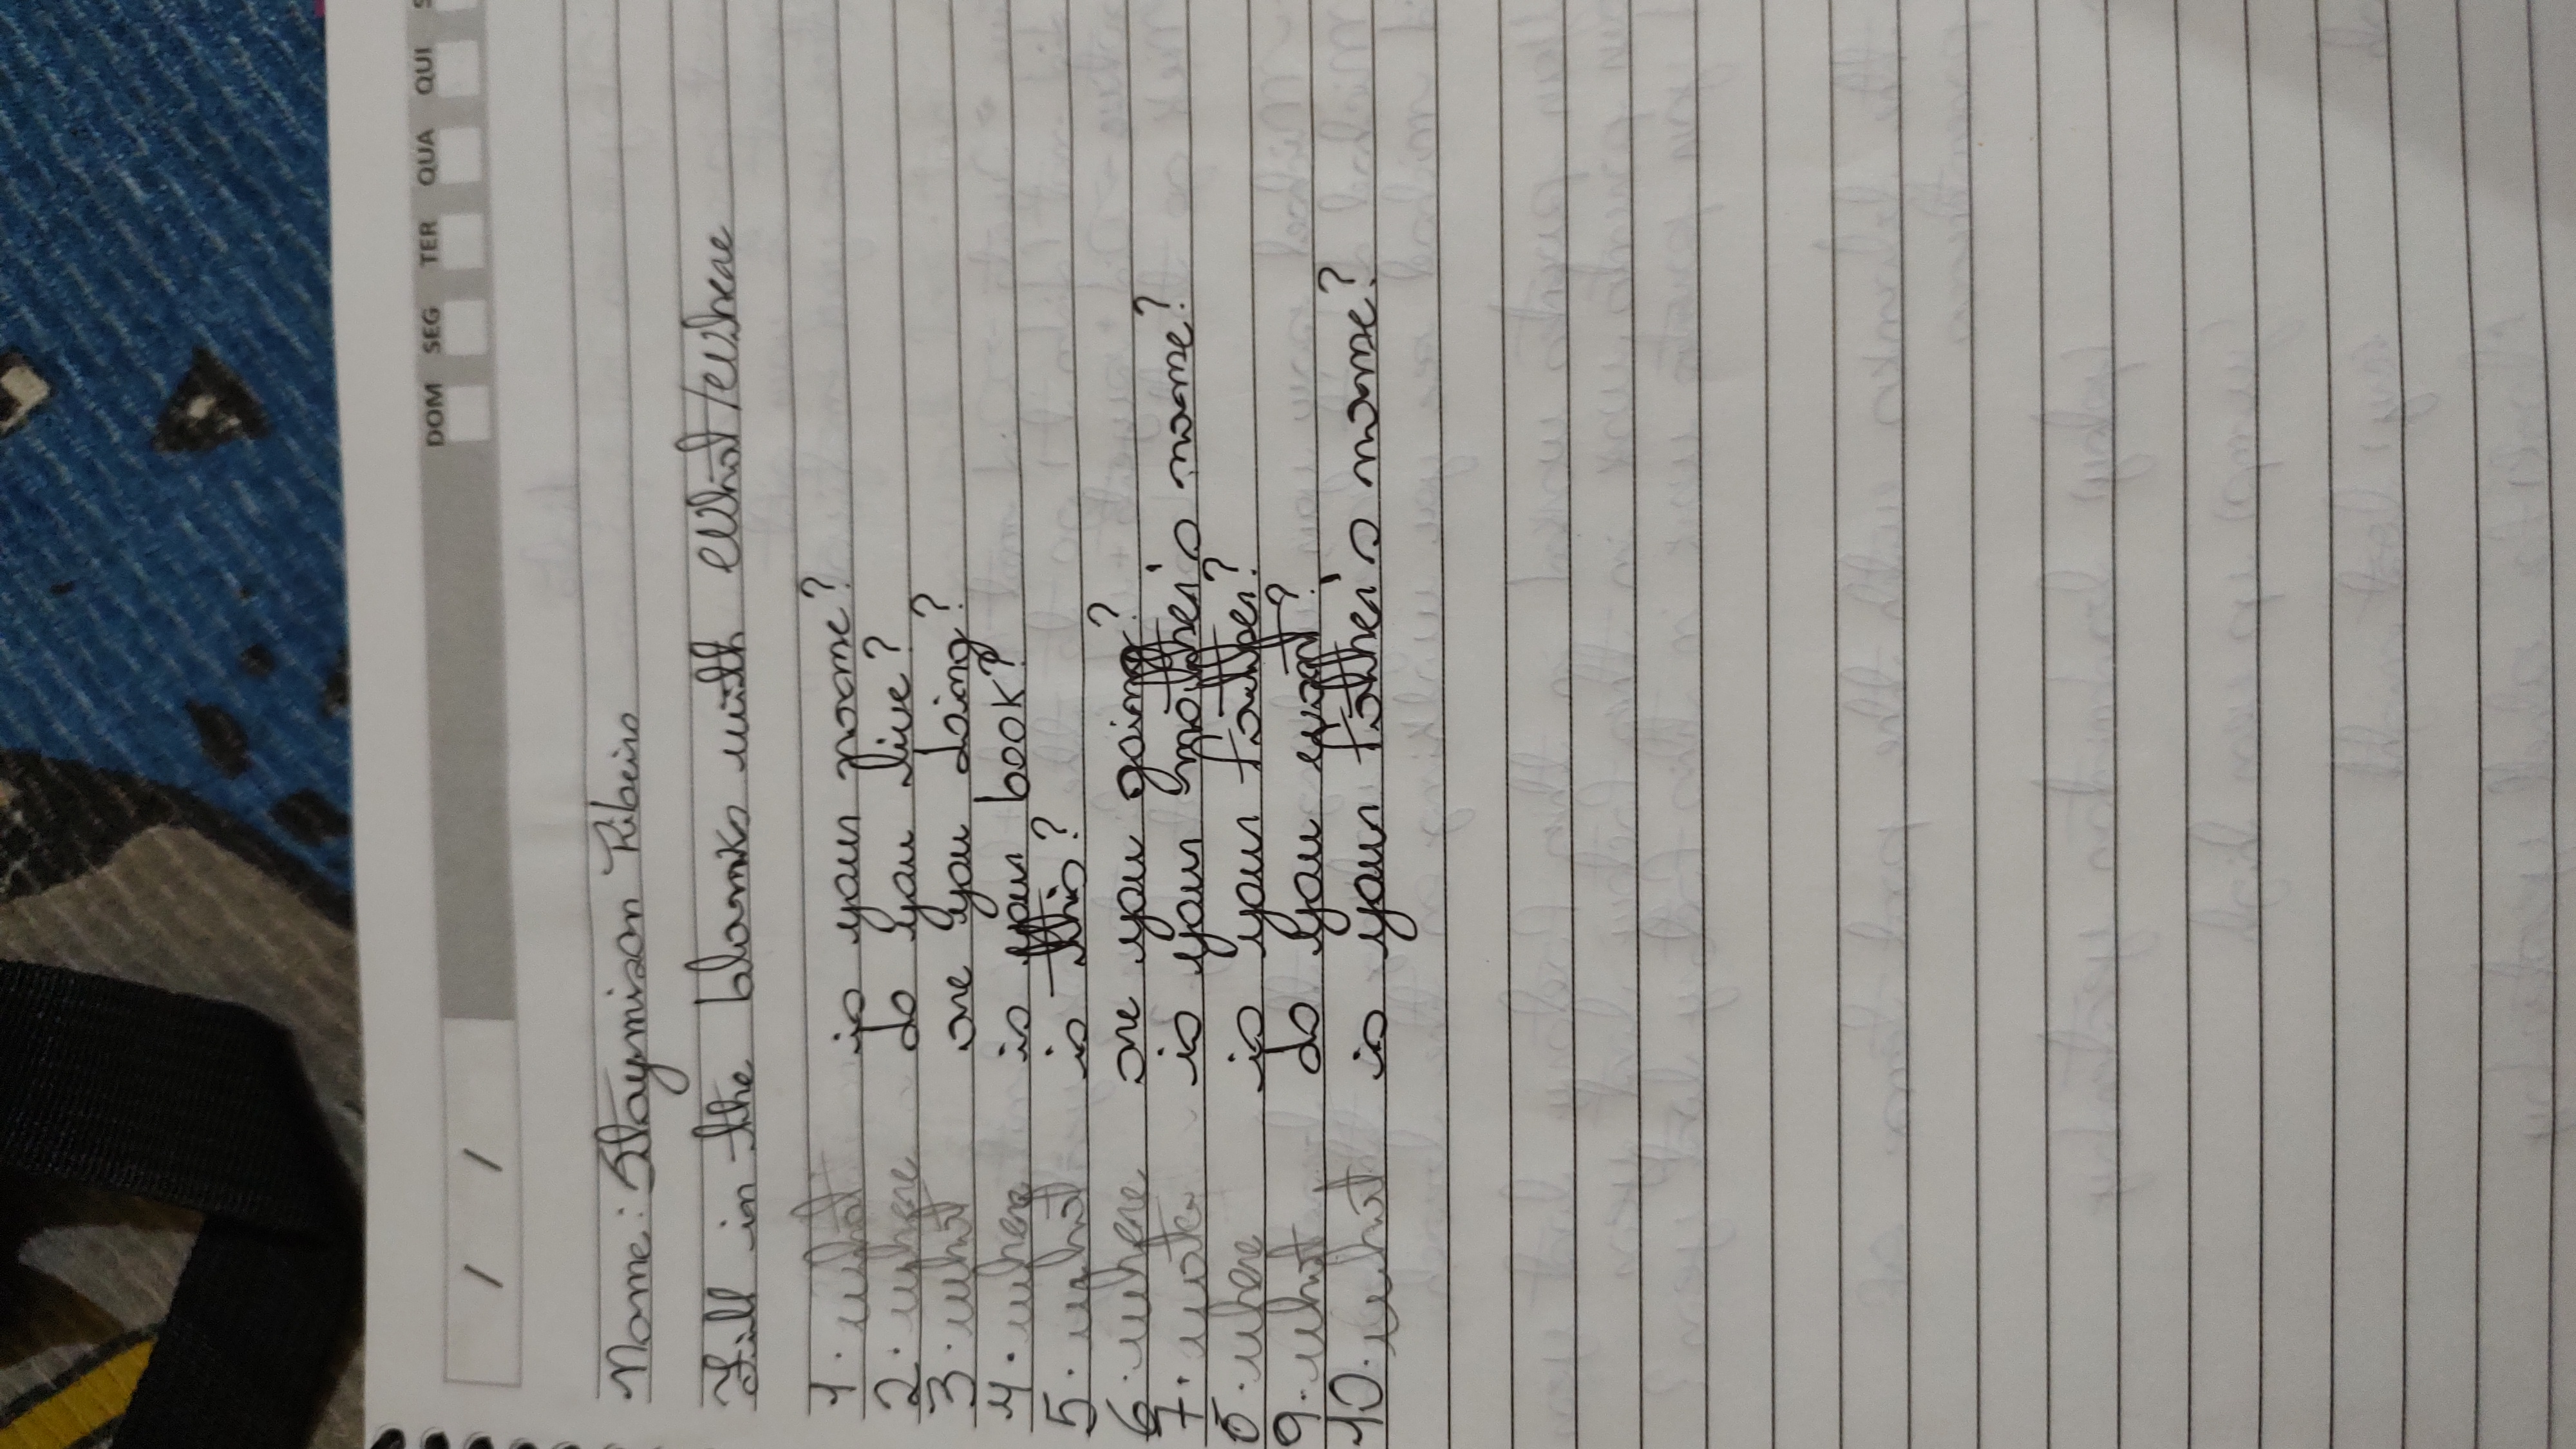 / /
DOM SEG TER QUA QUI S
Name: Ribeiro
Fill in the blanks with What/Where
1. what is your name?
2. where do you live?
3. what are you doing?
4. where is your book?
5. what is this?
6. where are you going?
7. is your mother's name?
8. where is your father?
9. what do you want?
10. what is your father's name?